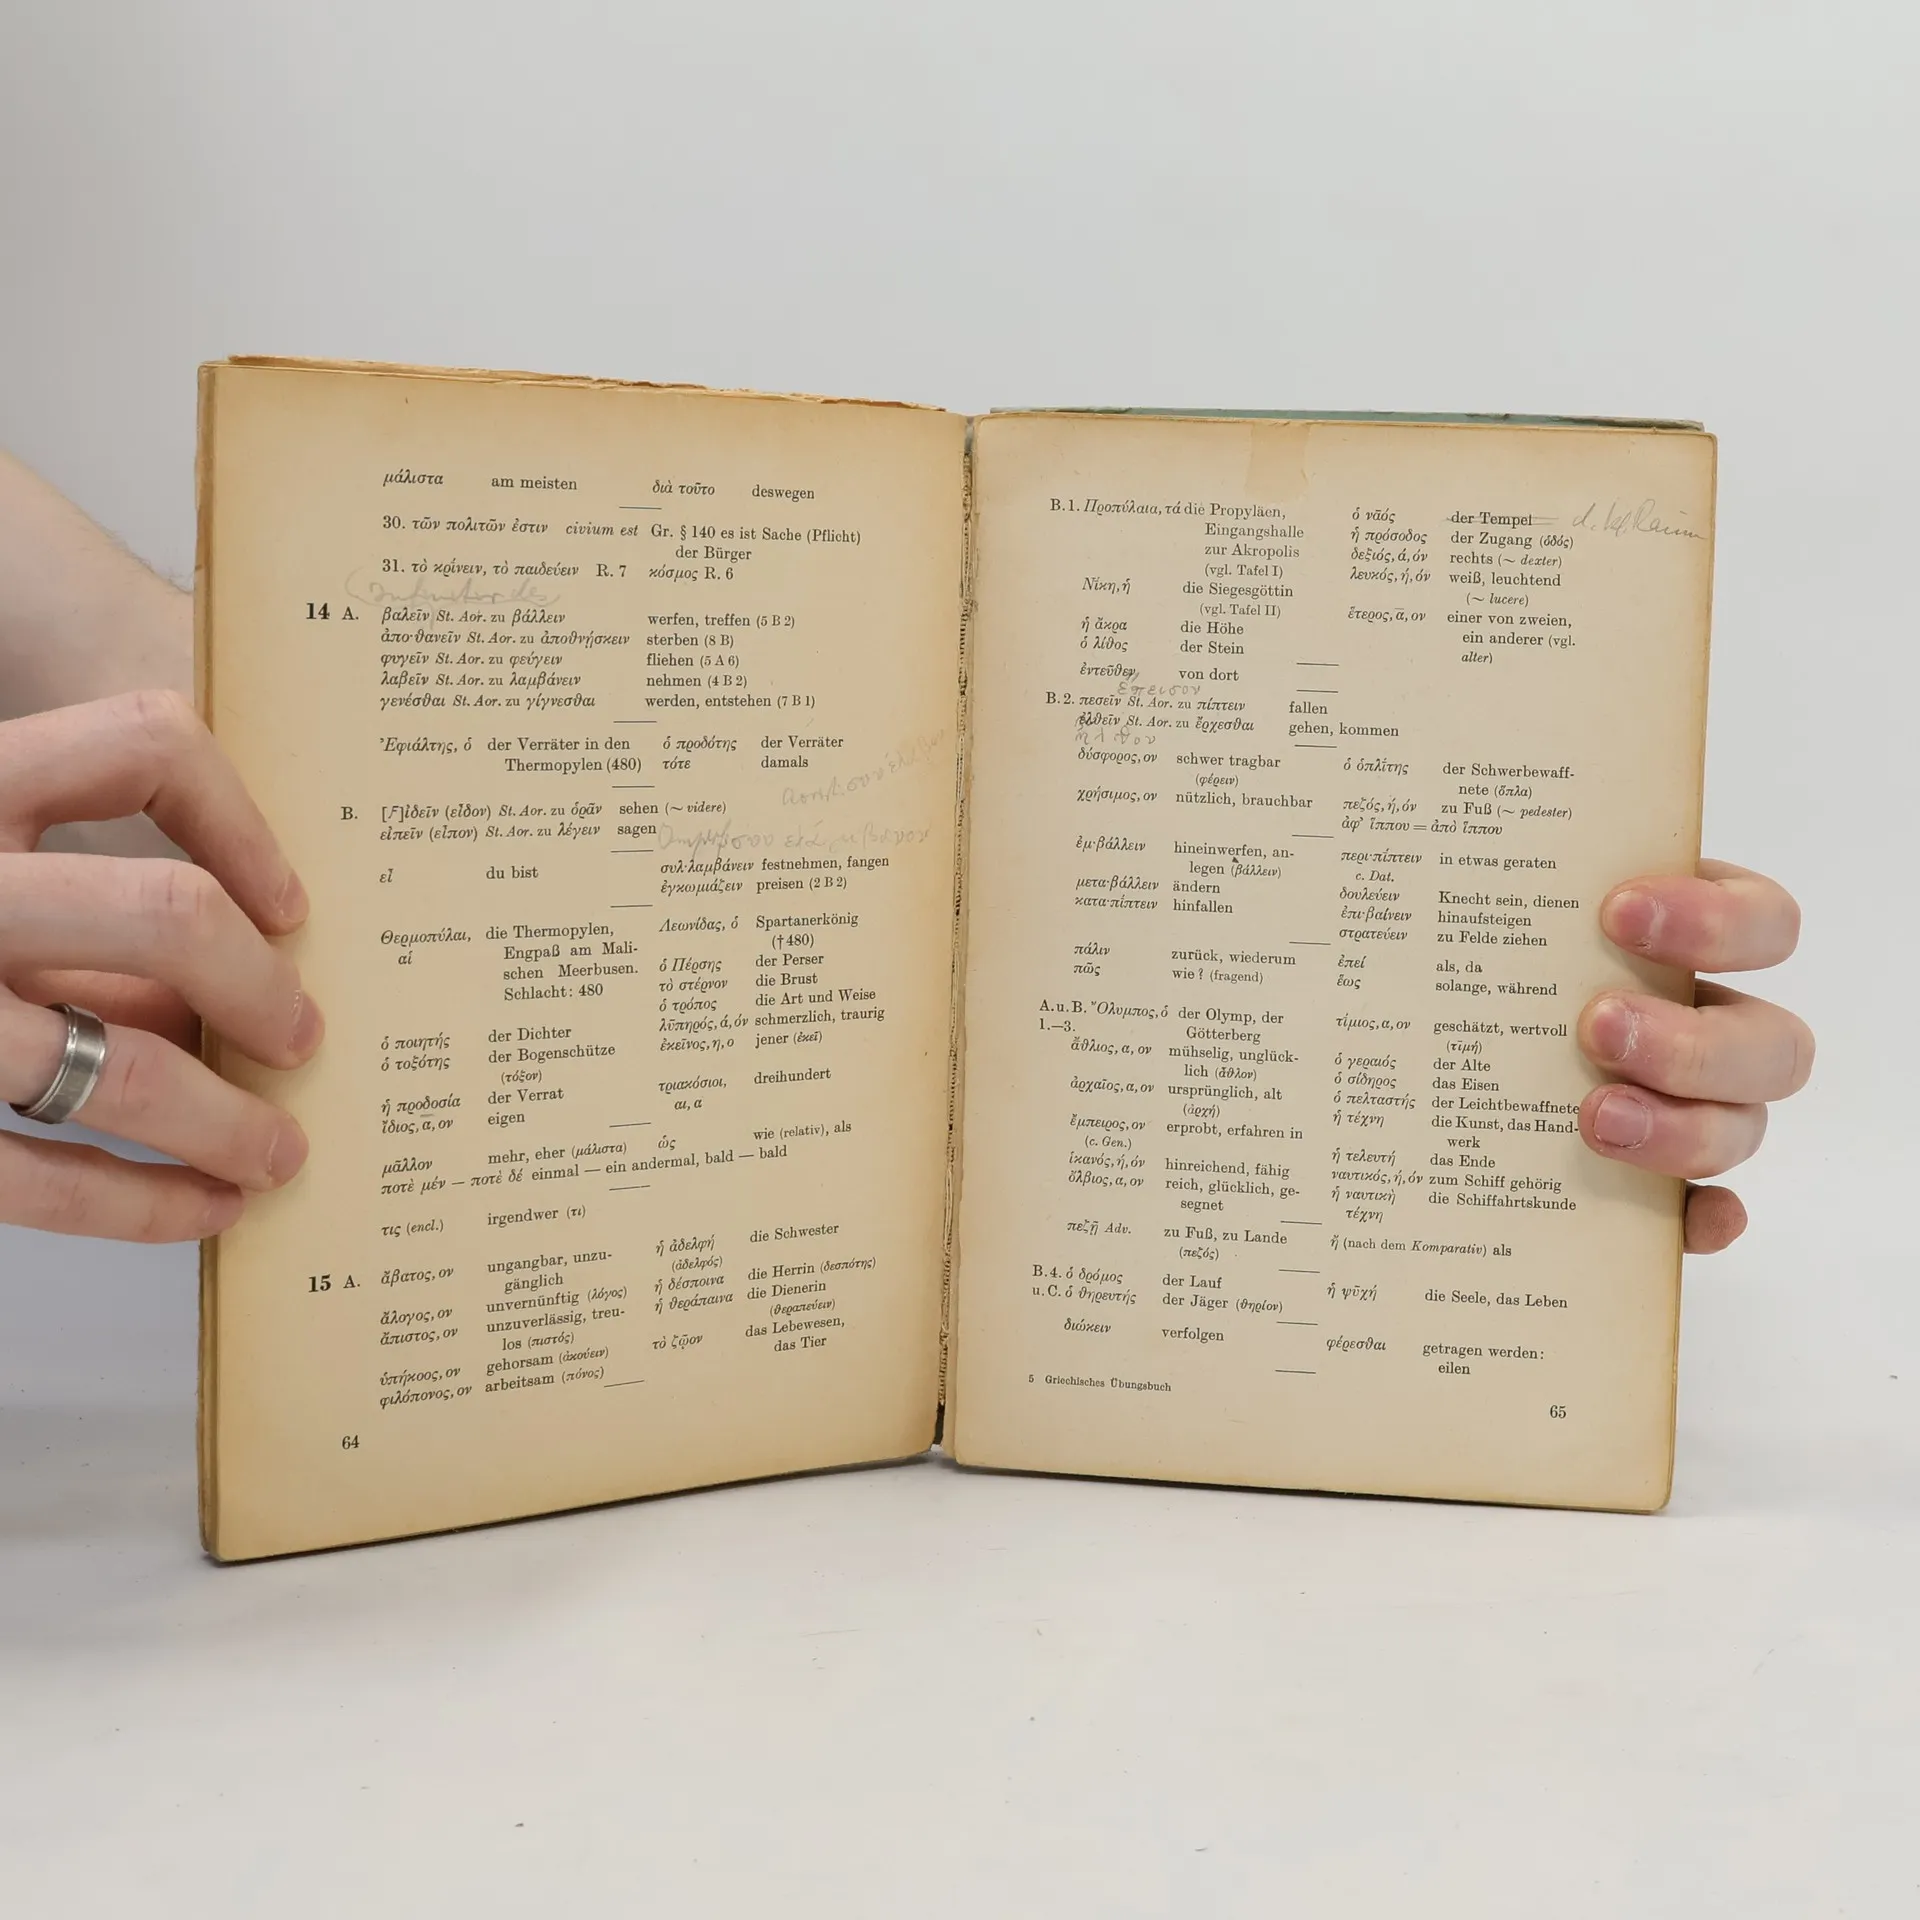 μάλιστα am meisten διὰ τοῦτο deswegen
30. τῶν πολιτῶν ἐστιν civium est Gr. § 140 es ist Sache (Pflicht)
der Bürger
31. τὸ κρίνειν, τὸ παιδεύειν R. 7 κόσμος R. 6
14 A. βαλεῖν St. Aor. zu βάλλειν werfen, treffen (5 B 2)
ἀπο·θανεῖν St. Aor. zu ἀποθνῄσκειν sterben (8 B)
φυγεῖν St. Aor. zu φεύγειν fliehen (5 A 6)
λαβεῖν St. Aor. zu λαμβάνειν nehmen (4 B 2)
γενέσθαι St. Aor. zu γίγνεσθαι werden, entstehen (7 B 1)
Ἐφιάλτης, ὁ der Verräter in den ὁ προδότης der Verräter
Thermopylen (480) τότε damals
B. [F]ἰδεῖν (εἶδον) St. Aor. zu ὁρᾶν sehen (~ videre)
εἰπεῖν (εἶπον) St. Aor. zu λέγειν sagen
εἶ du bist συλ·λαμβάνειν festnehmen, fangen
ἐγκωμιάζειν preisen (2 B 2)
Θερμοπύλαι, die Thermopylen, Λεωνίδας, ὁ Spartanerkönig
αἱ Engpaß am Mali- († 480)
schen Meerbusen. ὁ Πέρσης der Perser
Schlacht: 480 τὸ στέρνον die Brust
ὁ τρόπος die Art und Weise
ὁ ποιητής der Dichter λῡπηρός, ά, όν schmerzlich, traurig
ὁ τοξότης der Bogenschütze ἐκεῖνος, η, ο jener (ἐκεῖ)
(τόξον)
ἡ προδοσία der Verrat τριακόσιοι, dreihundert
ἴδιος, α, ον eigen αι, α
μᾶλλον mehr, eher (μάλιστα) ὡς wie (relativ), als
ποτὲ μέν — ποτὲ δέ einmal — ein andermal, bald — bald
τις (encl.) irgendwer (τι)
15 A. ἄβατος, ον ungangbar, unzu- ἡ ἀδελφή die Schwester
gänglich (ἀδελφός)
ἄλογος, ον unvernünftig (λόγος) ἡ δέσποινα die Herrin (δεσπότης)
ἄπιστος, ον unzuverlässig, treu- ἡ θεράπαινα die Dienerin
los (πιστός) (θεραπεύειν)
ὑπήκοος, ον gehorsam (ἀκούειν) τὸ ζῷον das Lebewesen,
φιλόπονος, ον arbeitsam (πόνος) das Tier
64
B. 1. Προπύλαια, τά die Propyläen, ὁ ναός der Tempel
Eingangshalle ἡ πρόσοδος der Zugang (ὁδός)
zur Akropolis δεξιός, ά, όν rechts (~ dexter)
(vgl. Tafel I) λευκός, ή, όν weiß, leuchtend
Νίκη, ἡ die Siegesgöttin (~ lucere)
(vgl. Tafel II) ἕτερος, ᾱ, ον einer von zweien,
ἡ ἄκρα die Höhe ein anderer (vgl.
ὁ λίθος der Stein alter)
ἐντεῦθεν von dort
ἔπεισον
B. 2. πεσεῖν St. Aor. zu πίπτειν fallen
ἐλθεῖν St. Aor. zu ἔρχεσθαι gehen, kommen
ἦλθον
δύσφορος, ον schwer tragbar ὁ ὁπλίτης der Schwerbewaff-
(φέρειν) nete (ὅπλα)
χρήσιμος, ον nützlich, brauchbar πεζός, ή, όν zu Fuß (~ pedester)
ἀφ' ἵππου = ἀπὸ ἵππου
ἐμ·βάλλειν hineinwerfen, an- περι·πίπτειν in etwas geraten
legen (βάλλειν) c. Dat.
μετα·βάλλειν ändern δουλεύειν Knecht sein, dienen
κατα·πίπτειν hinfallen ἐπι·βαίνειν hinaufsteigen
στρατεύειν zu Felde ziehen
πάλιν zurück, wiederum ἐπεί als, da
πῶς wie? (fragend) ἕως solange, während
A. u. B. Ὄλυμπος, ὁ der Olymp, der τίμιος, α, ον geschätzt, wertvoll
1.—3. Götterberg (τῑμή)
ἄθλιος, α, ον mühselig, unglück- ὁ γεραιός der Alte
lich (ἆθλον) ὁ σίδηρος das Eisen
ἀρχαῖος, α, ον ursprünglich, alt ὁ πελταστής der Leichtbewaffnete
(ἀρχή) ἡ τέχνη die Kunst, das Hand-
ἔμπειρος, ον erprobt, erfahren in werk
(c. Gen.) ἡ τελευτή das Ende
ἱκανός, ή, όν hinreichend, fähig ναυτικός, ή, όν zum Schiff gehörig
ὄλβιος, α, ον reich, glücklich, ge- ἡ ναυτικὴ die Schiffahrtskunde
segnet τέχνη
πεζῇ Adv. zu Fuß, zu Lande ἤ (nach dem Komparativ) als
(πεζός)
B. 4. ὁ δρόμος der Lauf ἡ ψῡχή die Seele, das Leben
u. C. ὁ θηρευτής der Jäger (θηρίον)
διώκειν verfolgen φέρεσθαι getragen werden:
eilen
5 Griechisches Übungsbuch
65